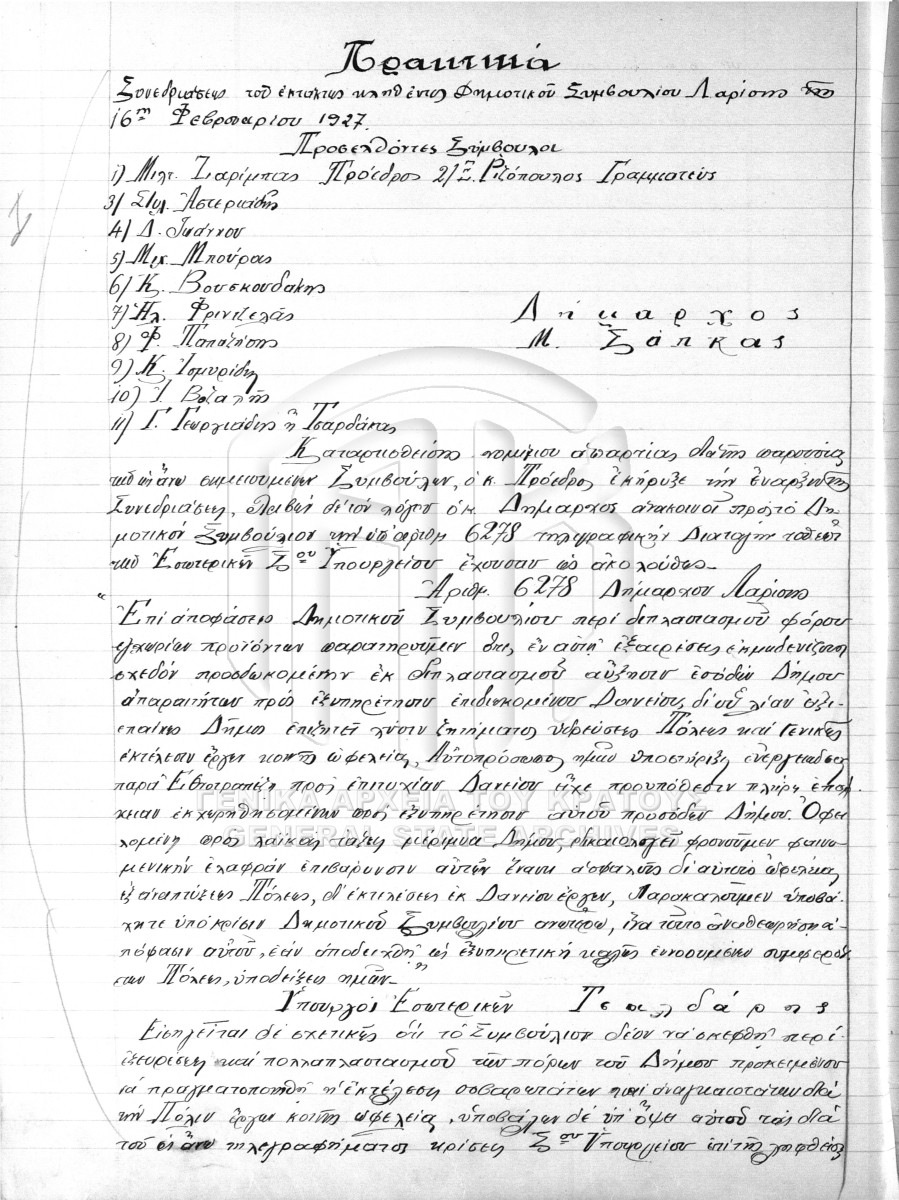 Πρακτικά
Συνεδριάσεως τοῦ ἐκτάκτως κληθέντος Δημοτικοῦ Συμβουλίου Λαρίσης τῆς
16ης Φεβρουαρίου 1927.
Προσελθόντες Σύμβουλοι
1) Μιλτ. Πρόεδρος 2) Ξ. Ριζόπουλος Γραμματεύς
3) Στυλ. Ἀστεριάδης
4) Δ. Ἰωάννου
5) Μιχ. Μπούρας
6) Κ. Βουσκουδάκης
7) Ἠλ. Φριντζελᾶς
Δήμαρχος
8) Φ. Παπαζήσης
Μ. Σάπκας
9) Κ. Ἰσμυρίδης
10) Ι.
11) Γ. Γεωργιάδης ἢ Τσαρδάκας
Καταρτισθείσης νομίμου ἀπαρτίας διὰ τῆς παρουσίας
τῶν ὡς ἄνω σημειουμένων Συμβούλων, ὁ κ. Πρόεδρος ἐκήρυξε τὴν ἔναρξιν τῆς
Συνεδριάσεως, λαβὼν δὲ τὸν λόγον ὁ κ. Δήμαρχος ἀνακοινοῖ πρὸς τὸ Δη-
μοτικὸν Συμβούλιον τὴν ὑπ' ἀριθμ. 6278 τηλεγραφικὴν Διαταγὴν τοῦ ἐπὶ
τῶν Ἐσωτερικῶν Σου Ὑπουργείου ἔχουσαν ὡς ἀκολούθως.
Ἀριθ. 6278 Δήμαρχον Λαρίσης
"Ἐπὶ ἀποφάσεως Δημοτικοῦ Συμβουλίου περὶ διπλασιασμοῦ φόρου
ἐγχωρίων προϊόντων παρατηροῦμεν ὅτι, ἐν αὐτῇ ἐξαιρέσεις ἐκμηδενίζουσι
σχεδὸν προσδωκομένην ἐκ διπλασιασμοῦ αὔξησιν ἐσόδων Δήμου
ἀπαραιτήτων πρὸς ἐξυπηρέτησιν ἐπιδιωκομένου Δανείου, δι' οὗ λίαν ἀξι-
επαίνως Δῆμος ἐπιζητεῖ λύσιν ζητήματος ὑδρεύσεως Πόλεως καὶ Γενικῶς
ἐκτέλεσιν ἔργων κοινῆς ὠφελείας, Αὐτοπρόσωπος ἡμῶν ὑποστήριξις ἐνεργειῶν σας
παρὰ Ἐθ. Τραπέζῃ πρὸς ἐπιτυχίαν Δανείου εἶχε προυπόθεσιν πλήρη ἐπάρ-
κειαν ἐκχωρηθησομένων πρὸς ἐξυπηρέτησιν αὐτοῦ προσόδων Δήμου. Ὀφει-
λομένη πρὸς λαϊκὰς τάξεις μέριμνα Δήμου, δικαιολογεῖ φρονοῦμεν φαινο-
μενικὴν ἐλαφρὰν ἐπιβάρυνσιν αὐτῶν ἔναντι ἀσφαλοῦς δι' αὐτὰς ὠφελείας
ἐξ ἀναπτύξεως Πόλεως, δι' ἐκτελέσεως ἐκ Δανείου ἔργων, Παρακαλοῦμεν ὑποβά-
λητε ὑπὸ κρίσιν Δημοτικοῦ Συμβουλίου ἀνωτέρω, ἵνα τοῦτο ἀναθεωρήσῃ ἀ-
πόφασιν αὐτοῦ, ἐὰν ἀποδειχθῇ ὡς ἐξυπηρετικὴ καλῶς ἐννοουμένων συμφερόν-
των Πόλεως, ὑποδείξεις ἡμῶν."
Ὑπουργὸς Ἐσωτερικῶν Τσαλδάρης
Εἰσηγεῖται δὲ σχετικῶς ὅτι τὸ Συμβούλιον δέον νὰ σκεφθῇ περὶ
ἐξευρέσεως καὶ πολλαπλασιασμοῦ τῶν πόρων τοῦ Δήμου προκειμένου
νὰ πραγματοποιηθῇ ἡ ἐκτέλεσις σοβαρωτάτων καὶ ἀναγκαιοτάτων διὰ
τὴν Πόλιν ἔργων κοινῆς ὠφελείας, ὑποβάλλων δὲ ὑπ' ὄψει αὐτοῦ τὰς διὰ
τοῦ ὡς ἄνω τηλεγραφήματος κρίσεις Σου Ὑπουργείου ἐπὶ τῆς ληφθείσης
ΓΕΝΙΚΑ ΑΡΧΕΙΑ ΤΟΥ ΚΡΑΤΟΥΣ
GENERAL STATE ARCHIVES